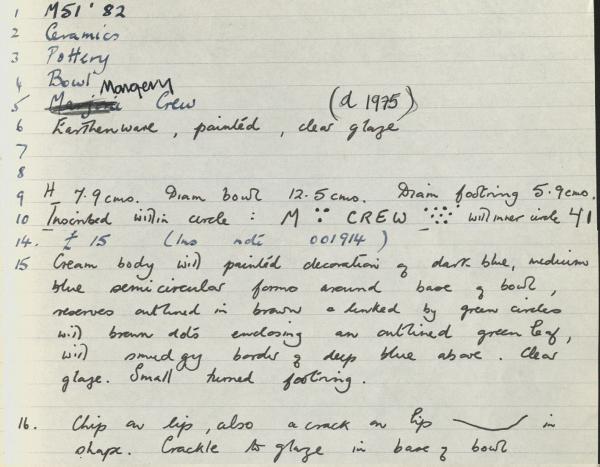 1 M51' 82
2 Ceramics
3 Pottery
4 Bowl
5 Margery Crew (d 1975)
6 Earthenware, painted, clear glaze
7
8
9 H 7.9 cms. Diam bowl 12.5 cms. Diam footring 5.9 cms.
10 Inscribed within circle : M CREW with inner circle 41
14. £ 15 (Ins note 001914)
15 Cream body with painted decoration of dark blue, medium
blue semicircular forms around base of bowl,
reserves outlined in brown & linked by green circles
with brown dots enclosing an outlined green leaf,
with smudgy border of deep blue above. Clear
glaze. Small turned footring.
16. Chip on lip, also a crack on lip in
shape. Crackle to glaze in base of bowl